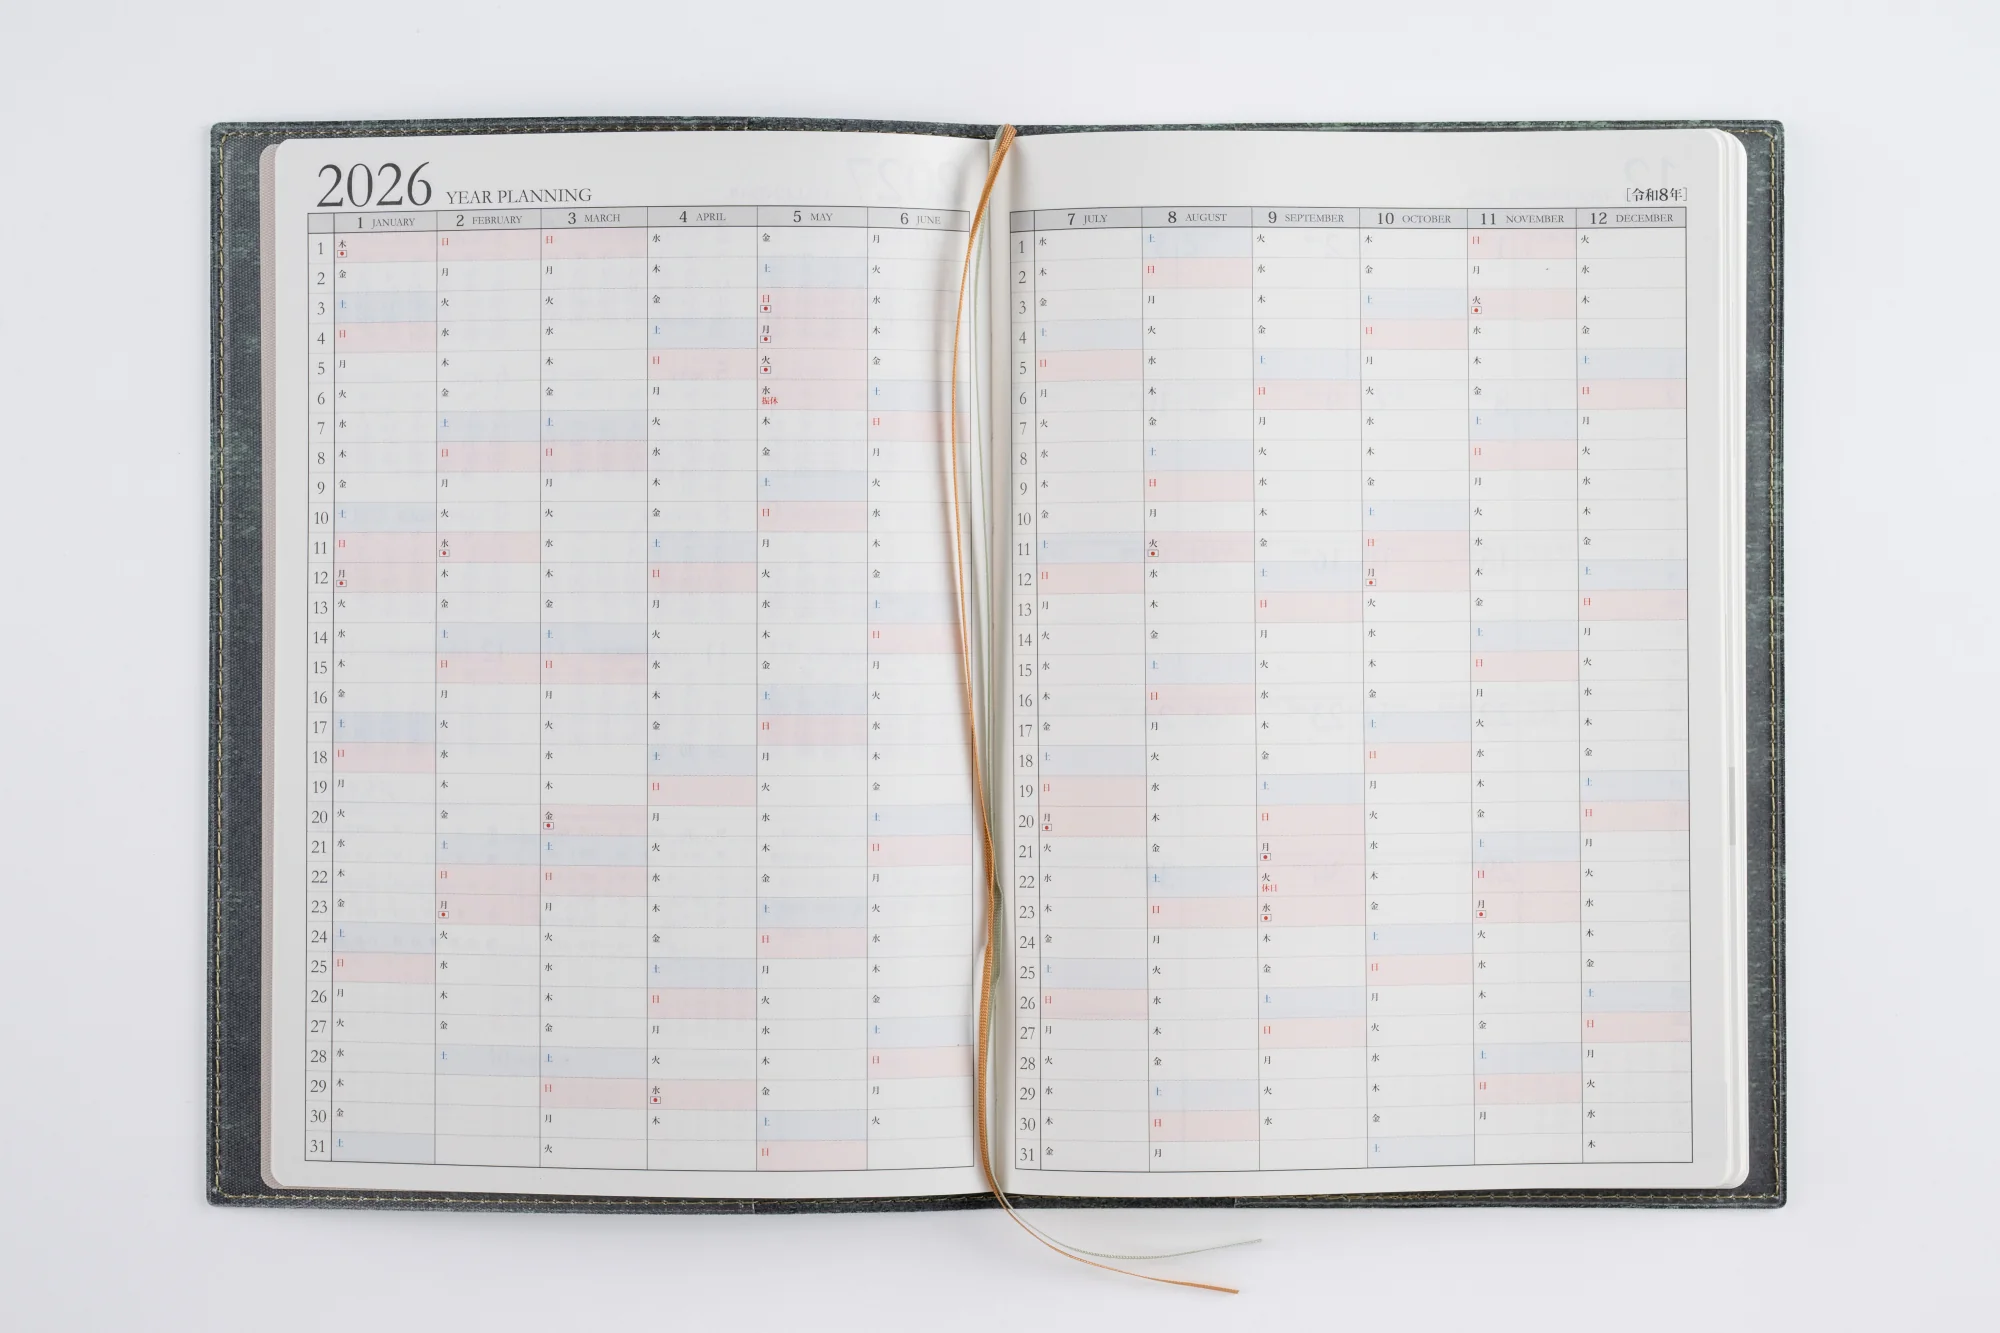 2026 YEAR PLANNING
1 JANUARY 2 FEBRUARY 3 MARCH 4 APRIL 5 MAY 6 JUNE
1 木 日 日 水 金 月
2 金 月 月 木 土 火
3 土 火 火 金 日 水
4 日 水 水 土 月 木
5 月 木 木 日 火 金
6 火 金 金 月 水 土
振休
7 水 土 土 火 木 日
8 木 日 日 水 金 月
9 金 月 月 木 土 火
10 土 火 火 金 日 水
11 日 水 水 土 月 木
12 月 木 木 日 火 金
13 火 金 金 月 水 土
14 水 土 土 火 木 日
15 木 日 日 水 金 月
16 金 月 月 木 土 火
17 土 火 火 金 日 水
18 日 水 水 土 月 木
19 月 木 木 日 火 金
20 火 金 金 月 水 土
21 水 土 土 火 木 日
22 木 日 日 水 金 月
23 金 月 月 木 土 火
24 土 火 火 金 日 水
25 日 水 水 土 月 木
26 月 木 木 日 火 金
27 火 金 金 月 水 土
28 水 土 土 火 木 日
29 木 日 水 金 月
30 金 月 木 土 火
31 土 火 日
[令和8年]
7 JULY 8 AUGUST 9 SEPTEMBER 10 OCTOBER 11 NOVEMBER 12 DECEMBER
1 水 土 火 木 日 火
2 木 日 水 金 月 水
3 金 月 木 土 火 木
4 土 火 金 日 水 金
5 日 水 土 月 木 土
6 月 木 日 火 金 日
7 火 金 月 水 土 月
8 水 土 火 木 日 火
9 木 日 水 金 月 水
10 金 月 木 土 火 木
11 土 火 金 日 水 金
12 日 水 土 月 木 土
13 月 木 日 火 金 日
14 火 金 月 水 土 月
15 水 土 火 木 日 火
16 木 日 水 金 月 水
17 金 月 木 土 火 木
18 土 火 金 日 水 金
19 日 水 土 月 木 土
20 月 木 日 火 金 日
21 火 金 月 水 土 月
22 水 土 火 木 日 火
休日
23 木 日 水 金 月 水
24 金 月 木 土 火 木
25 土 火 金 日 水 金
26 日 水 土 月 木 土
27 月 木 日 火 金 日
28 火 金 月 水 土 月
29 水 土 火 木 日 火
30 木 日 水 金 月 水
31 金 月 土 木